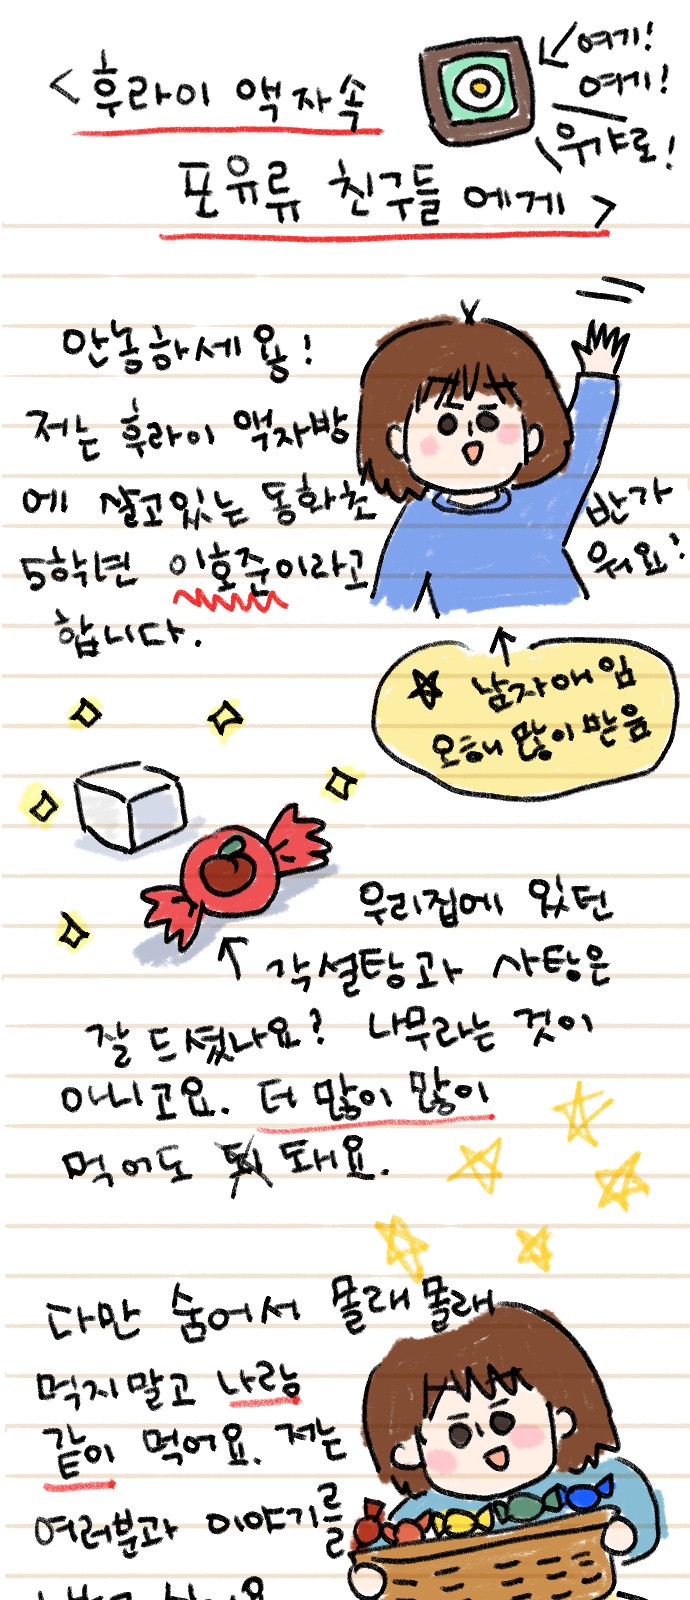 <후라이 액자속
여기!
여기!
포유류 친구들 에게>
안농하세용!
저는 후라이 액자방
에 살고있는 동화초
5학년 이호준이라고
합니다.
반가
워요!
남자애임
오해 많이 받음
우리집에 있던
각설탕과 사탕은
잘 드셨나요? 나무라는 것이
아니고요. 더 많이 많이
먹어도 돼요.
다만 숨어서 몰래몰래
먹지말고 나랑
같이 먹어요. 저는
여러분과 이야기를